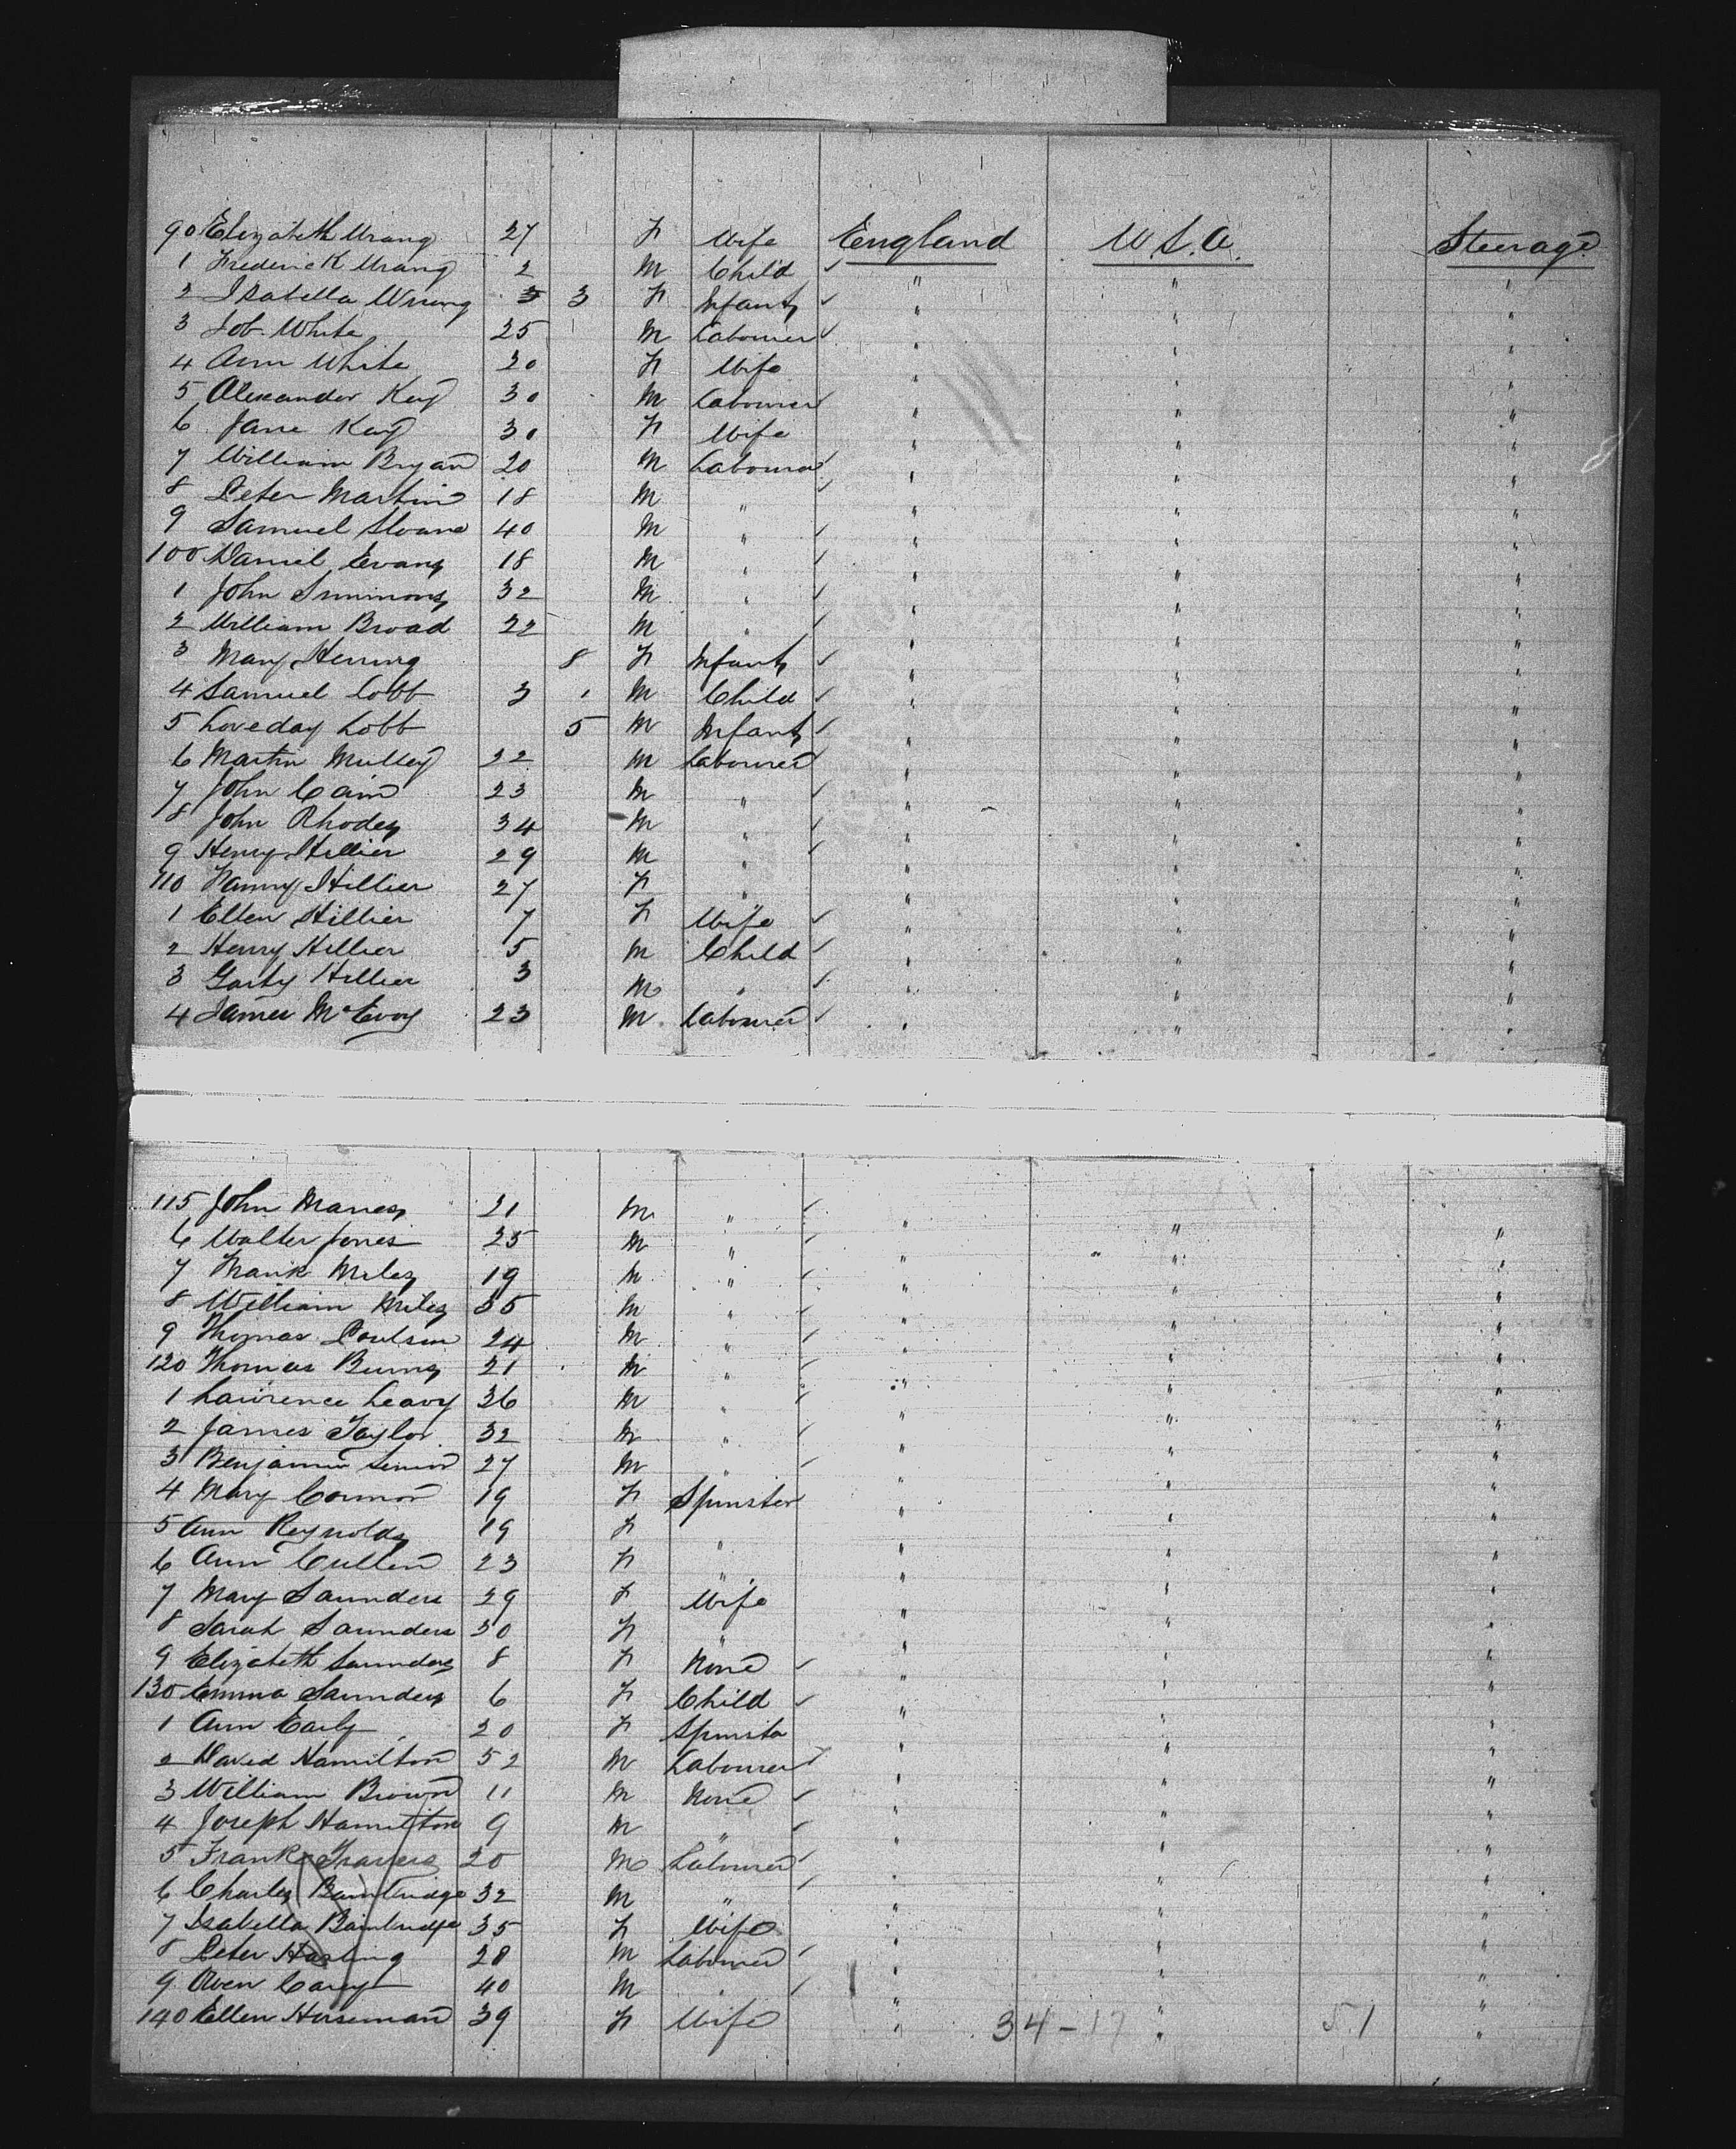 90 Elizabeth Urang 27 F Wife England U.S.A. Steerage
1 Frederick Urang 2 M Child ✓ " " "
2 Isabella 3 F Infant ✓ " " "
3 Job White 25 M Labourer ✓ " " "
4 Ann White 20 F Wife " " "
5 Alexander Key 30 M Labourer " " "
6 Jane Key 30 F Wife " " "
7 William Bryan 20 M Labourer ✓ " " "
8 Peter Martin 18 M " ✓ " " "
9 Samuel Sloane 40 M " ✓ " " "
100 Daniel Evans 18 M " ✓ " " "
1 John Simmons 32 M " ✓ " " "
2 William Broad 22 M " ✓ " " "
3 Mary Hening 8 F Infant ✓ " " "
4 Samuel Lobb 3 M Child ✓ " " "
5 Loveday Lobb 5 M Infant ✓ " " "
6 Martin Mulley 22 M Labourer ✓ " " "
7 John Cain 23 M " ✓ " " "
8 John Rhodes 34 M " ✓ " " "
9 Henry Hillier 29 M " ✓ " " "
110 Fanny Hillier 27 F " " " "
1 Ellen Hillier 7 F Wife ✓ " " "
2 Henry Hillier 5 M Child ✓ " " "
3 Hillier 3 M " ✓ " " "
4 James McEvoy 23 M Labourer ✓ " " "
115 John 21 M " ✓ " " "
6 Walter Jones 25 M " ✓ " " "
7 Frank Miles 19 M " ✓ " " "
8 William Miles 35 M " ✓ " " "
9 Thomas Poulson 24 M " ✓ " " "
120 Thomas Burns 21 M " ✓ " " "
1 Lawrence Leavy 36 M " ✓ " " "
2 James Taylor 32 M " ✓ " " "
3 Benjamin Senior 27 M " ✓ " " "
4 Mary Connor 19 F Spinster " " "
5 Ann Reynolds 19 F " " " "
6 Ann Cullen 23 F " " " "
7 Mary Saunders 29 F Wife " " "
8 Sarah Saunders 30 F " " " "
9 Elizabeth Saunders 8 F None ✓ " " "
130 Emma Saunders 6 F Child ✓ " " "
1 Ann Early 20 F Spinster " " "
2 David Hamilton 52 M Labourer ✓ " " "
3 William Brown 11 M None ✓ " " "
4 Joseph Hamilton 9 M " ✓ " " "
5 Frank Travers 20 M Labourer ✓ " " "
6 Charles Bainbridge 32 M " ✓ " " "
7 Isabella Bainbridge 35 F Wife " " "
8 Peter Harling 28 M Labourer ✓ " " "
9 Owen Carey 40 M " ✓ " " "
140 Ellen Horseman 39 F Wife " " "
34-17 51